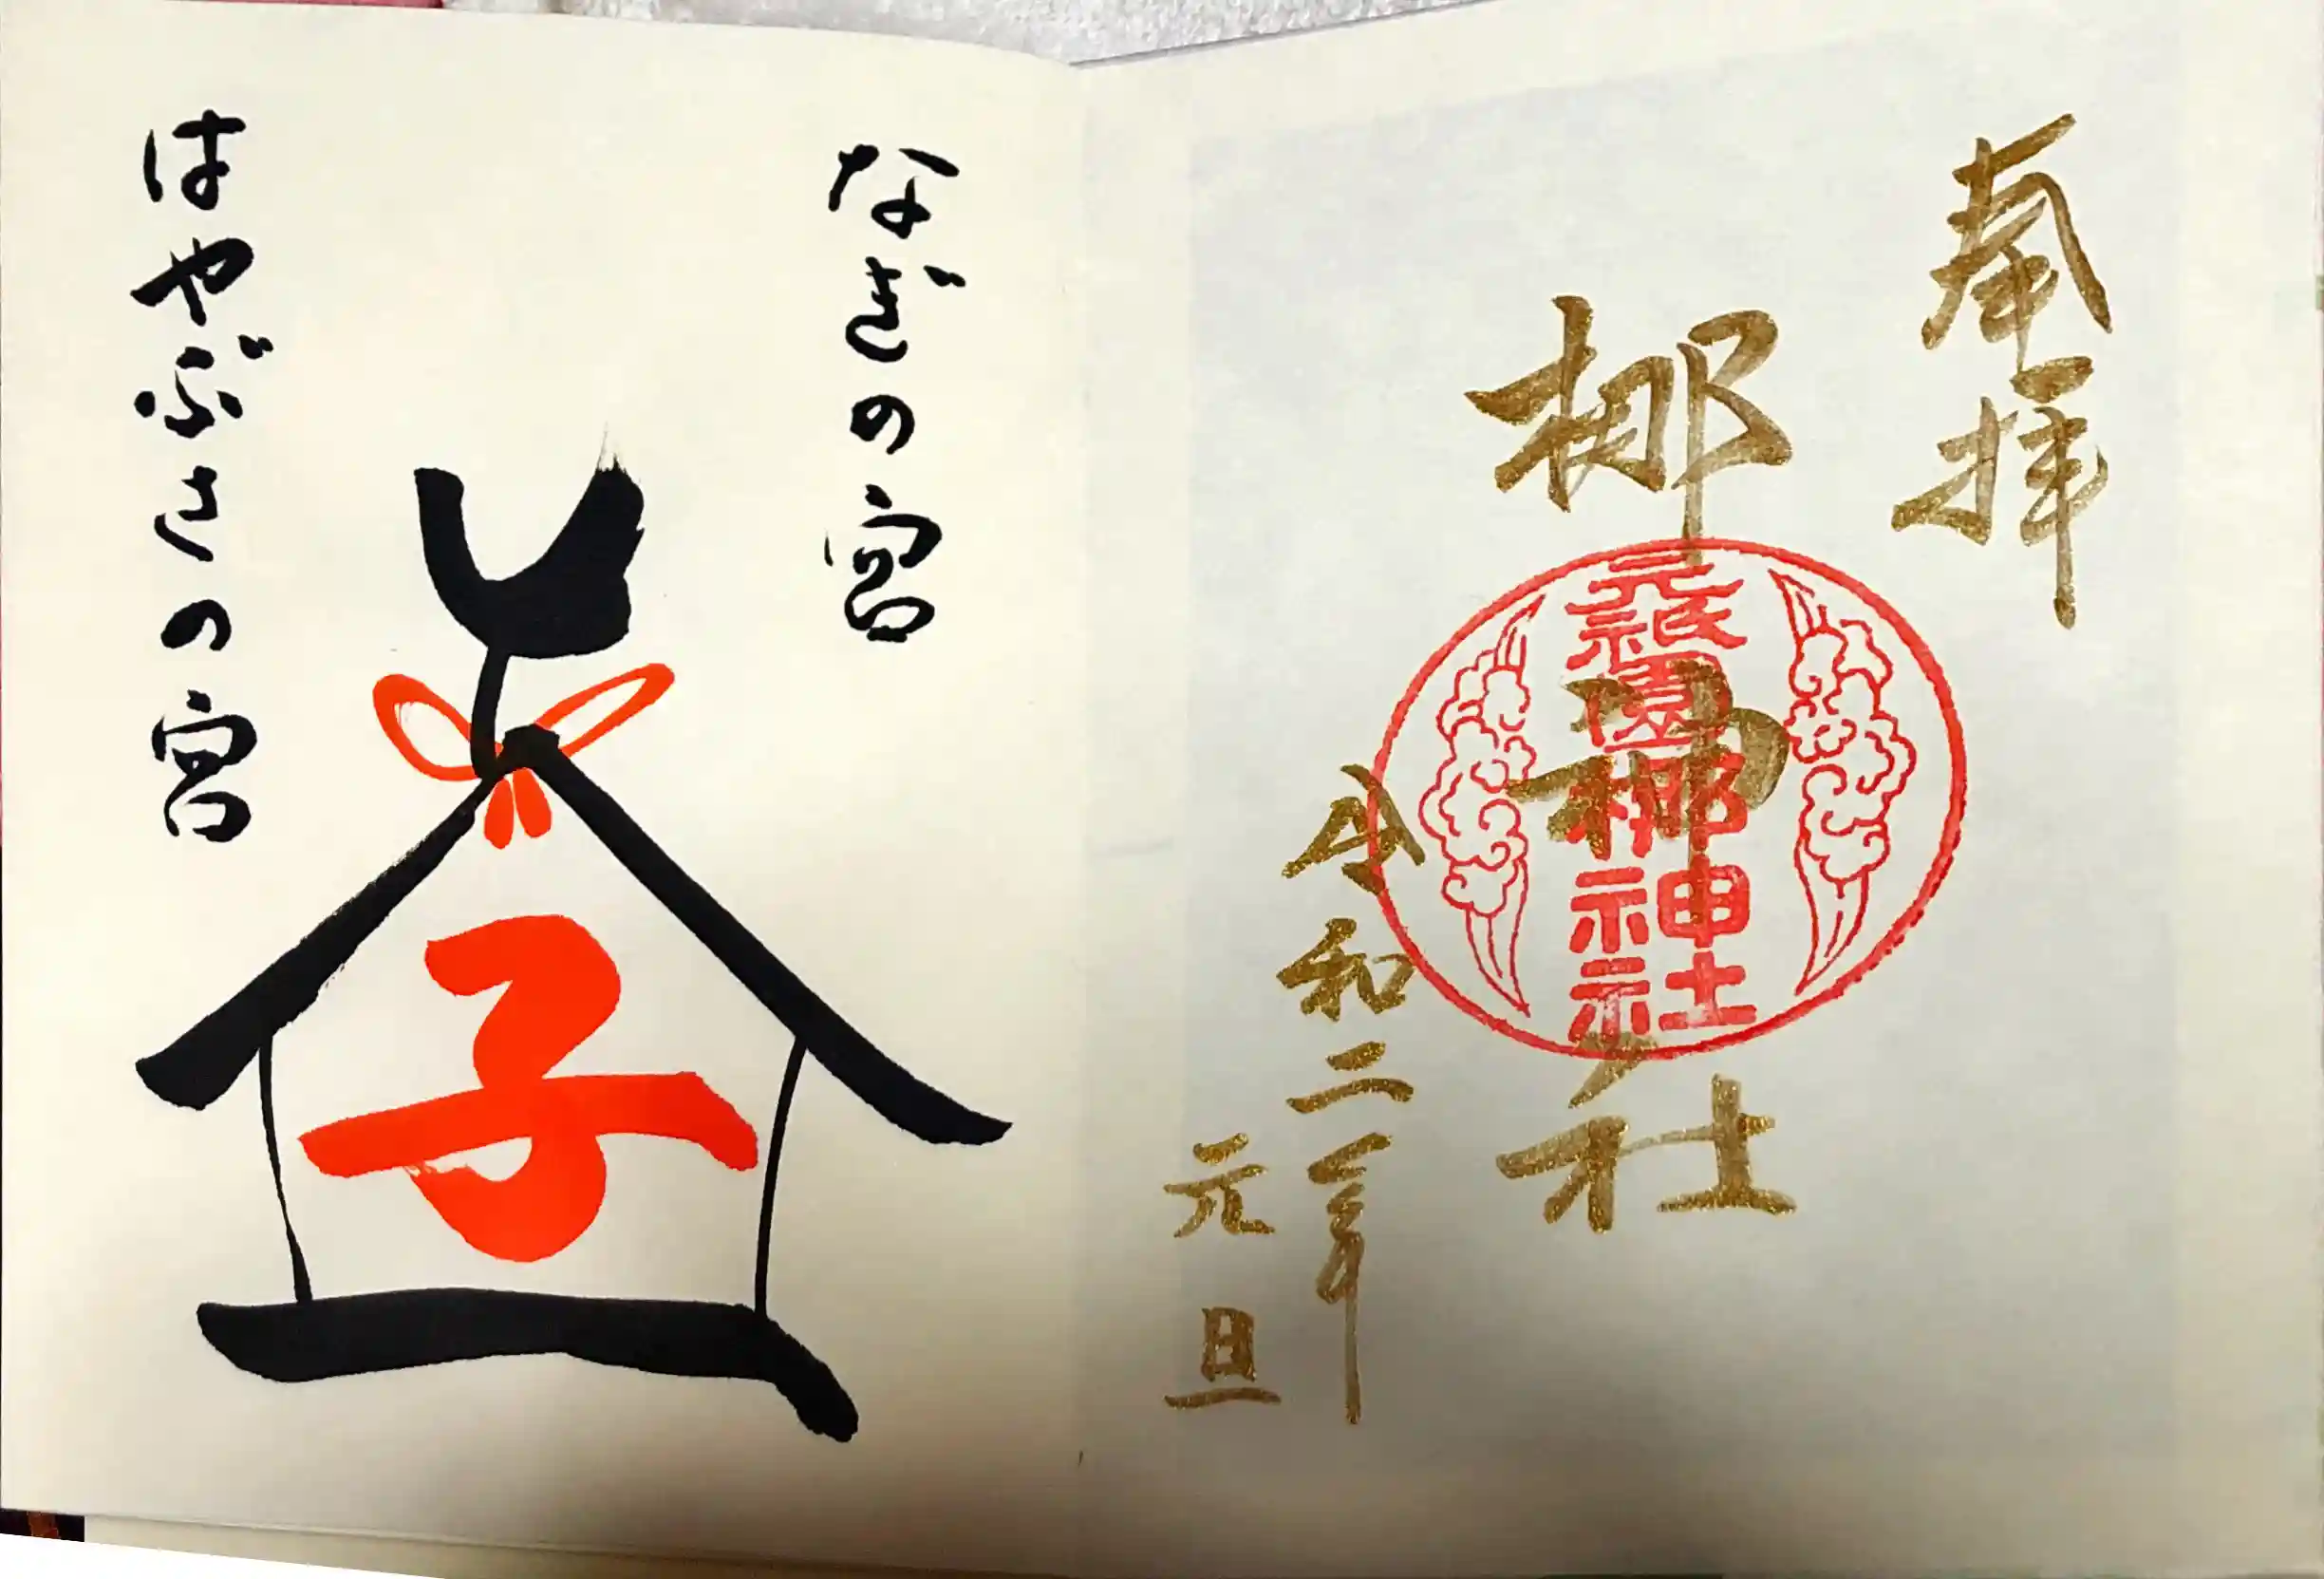 奉拝
梛神社
元祇園梛神社
令和二年
元旦
なぎの宮
子
はやぶさの宮